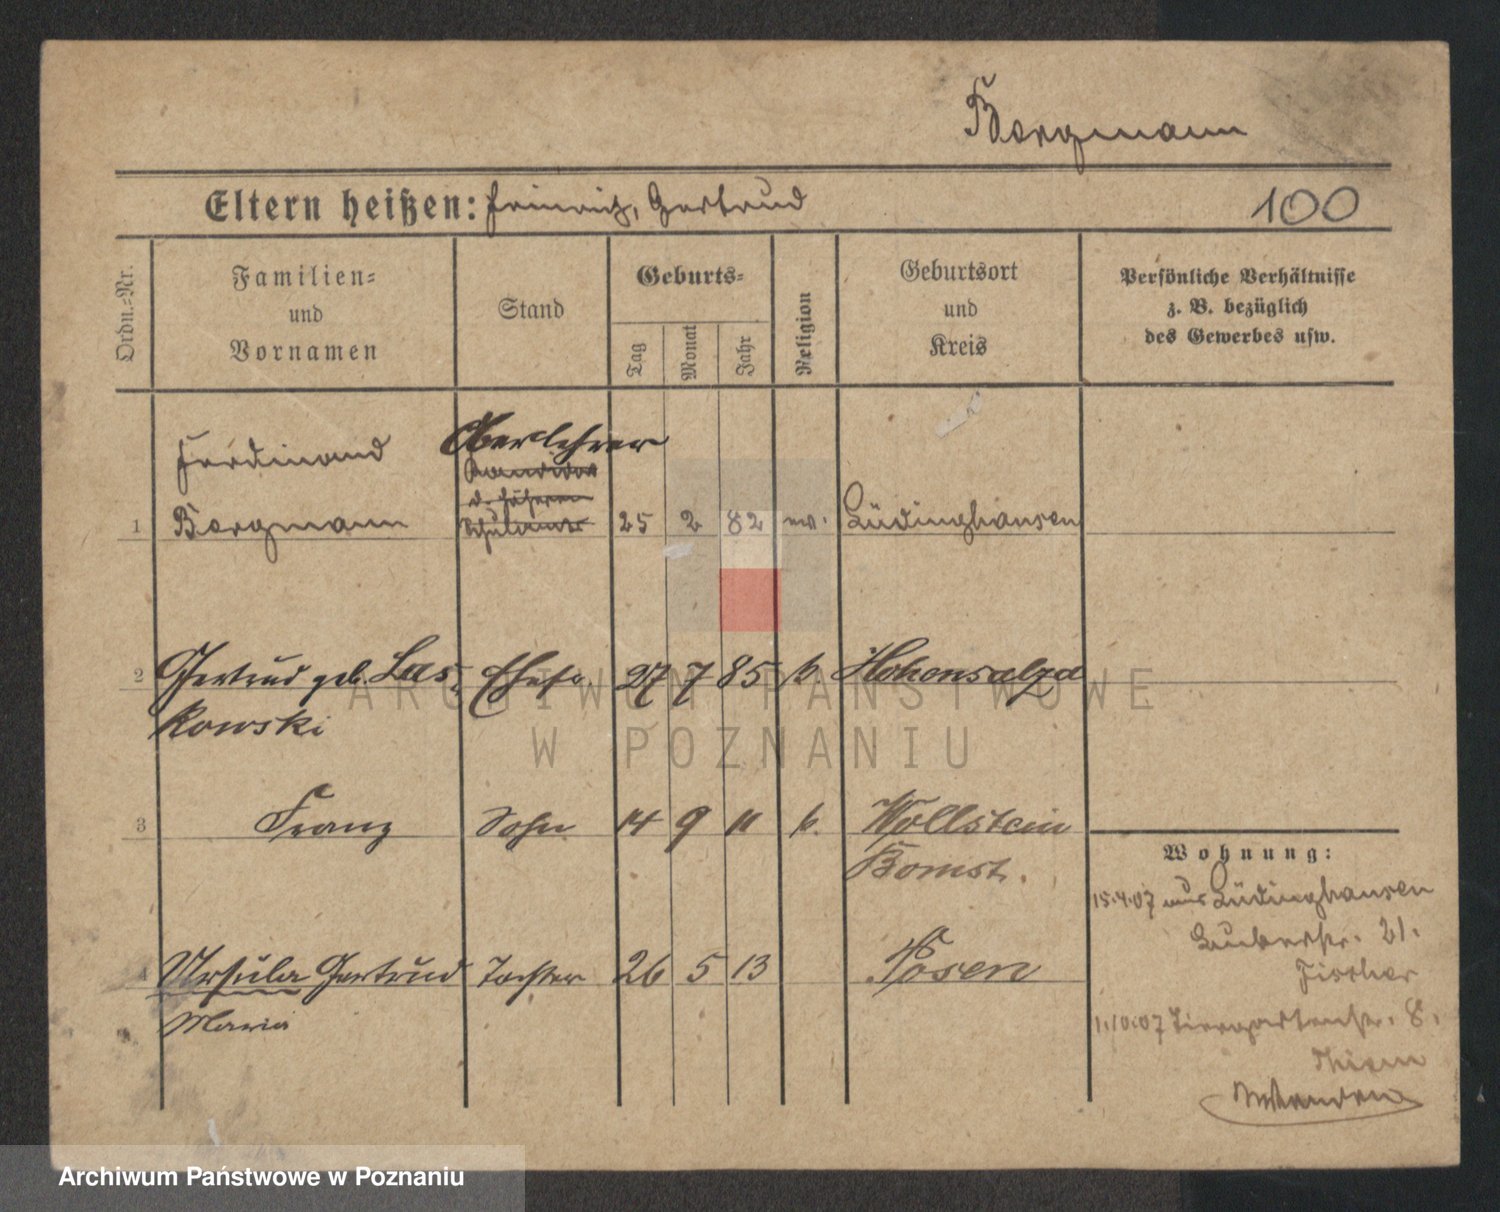 Bergmann
Eltern heißen: Heinrich, Gertrud 100
Ordn.-Nr.
Familien-
und
Vornamen
Stand
Geburts-
Tag
Monat
Jahr
Religion
Geburtsort
und
Kreis
Persönliche Verhältnisse
z. B. bezüglich
des Gewerbes usw.
Ferdinand Oberlehrer
Kandidat
d. höheren
1 Bergmann Schulamts 25 2 82 ev. Lüdinghausen
2 Gertrud geb. Las- Ehefr. 27 7 85 k. Hohensalza
kowski
3 Franz Sohn 14 9 11 k. Wollstein
Bomst.
Wohnung:
15.4.07 aus Lüdinghausen
21.
Fischer
4 Ursula Gertrud Tochter 26 5 13 Posen
Maria
1.10.07 Tiergartenstr. 8.
Thiem
ARCHIWUM PAŃSTWOWE
W POZNANIU
Archiwum Państwowe w Poznaniu